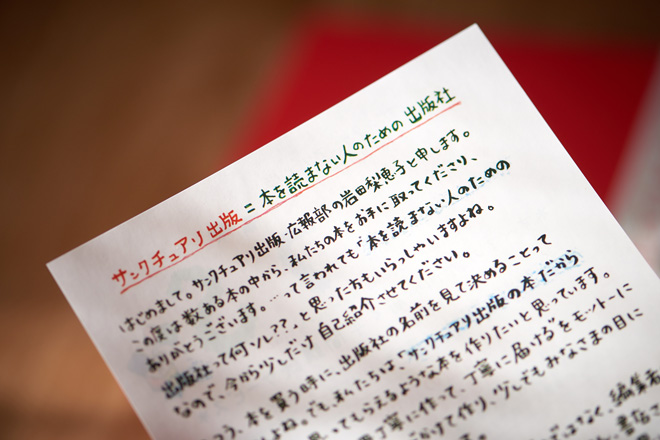 サンクチュアリ出版=本を読まない人のための出版社
はじめまして。サンクチュアリ出版・広報部の岩田梨恵子と申します。
この度は数ある本の中から、私たちの本をお手に取ってくださり、
ありがとうございます。…って言われても「本を読まない人のための
出版社って何ソレ??」と思った方もいらっしゃいますよね。
なので、今から少しだけ自己紹介させてください。
う、本を買う時に、出版社の名前を見て決めることって
よね。でも、私たちは、「サンクチュアリ出版の本だから
思ってもらえるような本を作りたいと思っています。
丁寧に作って、丁寧に届ける"をモットーに
かけて作り、少しでもみなさまの目に
はなく、編集者